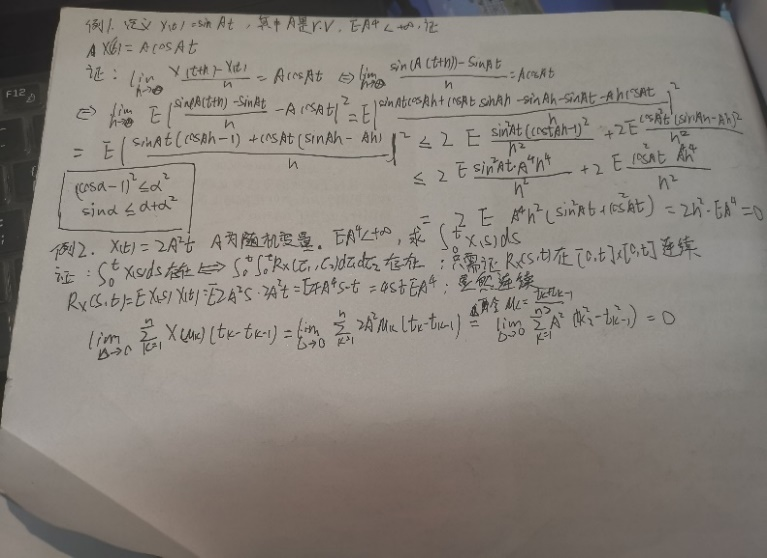 F12
例1. 定义 X(t) = sin At，其中A是r.v. EA⁴<+∞, 证
X'(t) = A cos At
证: lim_{h→0} X(t+h)-X(t)/h = A cos At ⇔ lim_{h→0} sin(A(t+h))-sin At/h = A cos At
⇔ lim_{h→0} E|sin A(t+h)-sin At/h - A cos At|² = E|sin At cos Ah + cos At sin Ah - sin Ah - sin At - Ah cos At/h|²
= E|sin At(cos Ah-1)+cos At(sin Ah-Ah)/h|² ≤ 2E sin²At(cos Ah-1)²/h² + 2E cos²At(sin Ah-Ah)²/h²
≤ 2E sin²At·A⁴h⁴/h² + 2E cos²At A⁴h⁴/h²
(cosα-1)² ≤ α²
sinα ≤ α+α²
= 2E A⁴h²(sin²At+cos²At) = 2h²·EA⁴ = 0
例2. X(t) = 2A²t A为随机变量. EA⁴<+∞, 求 ∫₀ᵗ X(s)ds
证: ∫₀ᵗ X(s)ds 存在 ⇔ ∫₀ᵗ∫₀ᵗ Rx(τ₁,τ₂)dτ₁dτ₂ 存在; 只需证 Rx(s,t) 在 [0,t]×[0,t] 连续
Rx(s,t) = E X(s)X(t) = E2A²s·2A²t = E4A⁴s·t = 4st EA⁴; 显然连续
lim_{Δ→0} Σ_{k=1}^{n} X(μk)(tk-tk-1) = lim_{Δ→0} Σ_{k=1}^{n} 2A²μk(tk-tk-1) = 令 μk = tk+tk-1/2 lim_{Δ→0} Σ_{k=1}^{n} A²(tk²-t²k-1) = 0